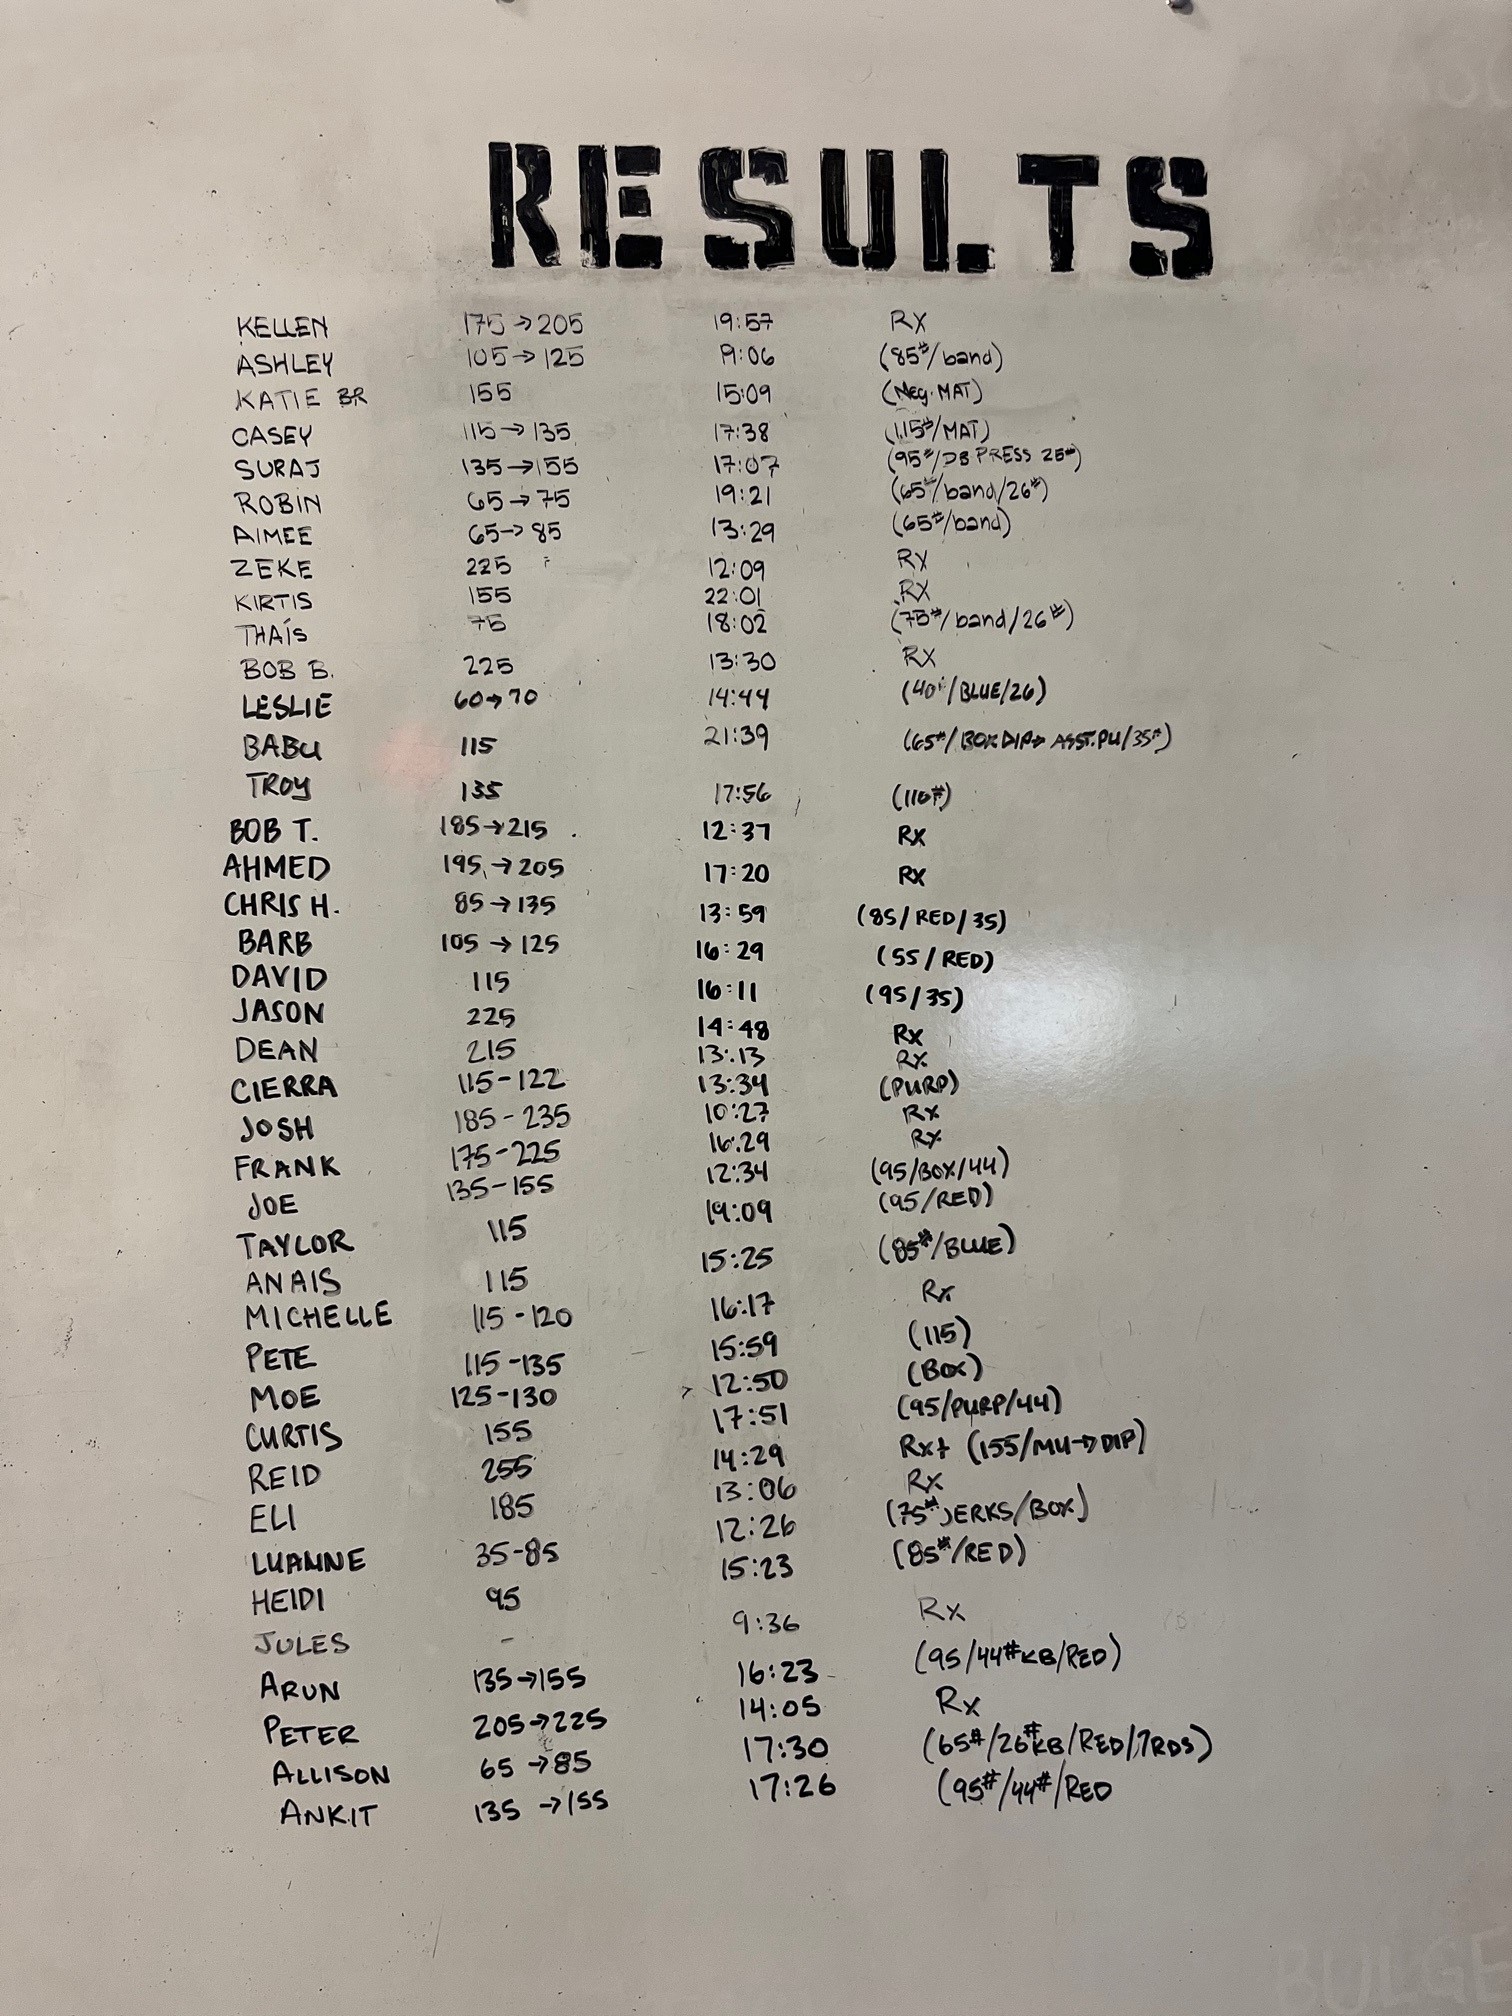 RESULTS
KELLEN 175→205 19:57 Rx
ASHLEY 105→125 9:06 (85#/band)
KATIE BR 155 15:09 (Neg. MAT)
CASEY 115→135 17:38 (115#/MAT)
SURAJ 135→155 17:07 (95#/DB PRESS 25#)
ROBIN 65→75 19:21 (65#/band/26#)
AIMEE 65→85 13:29 (65#/band)
ZEKE 225 12:09 Rx
KIRTIS 155 22:01 Rx
THAÍS 75 18:02 (75#/band/26#)
BOB B. 225 13:30 Rx
LESLIE 60→70 14:44 (40#/BLUE/26)
BABU 115 21:39 (65#/BOX DIP→ ASST. PU/35#)
TROY 135 17:56 (110#)
BOB T. 185→215 12:37 Rx
AHMED 195→205 17:20 Rx
CHRIS H. 85→135 13:59 (85/RED/35)
BARB 105→125 16:29 (55/RED)
DAVID 115 16:11 (95/35)
JASON 225 14:48 Rx
DEAN 215 13:13 Rx
CIERRA 115-122 13:34 (PURP)
JOSH 185-235 10:27 Rx
FRANK 175-225 16:29 Rx
JOE 135-155 12:34 (95/BOX/44)
TAYLOR 115 19:09 (95/RED)
ANAIS 115 15:25 (85#/BLUE)
MICHELLE 115-120 16:17 Rx
PETE 115-135 15:59 (115)
MOE 125-130 12:50 (BOX)
CURTIS 155 17:51 (95/PURP/44)
REID 255 14:29 Rx+ (155/MU→DIP)
ELI 185 13:06 Rx
LUANNE 35-85 12:26 (75# JERKS/BOX)
HEIDI 95 15:23 (85#/RED)
JULES - 9:36 Rx
ARUN 135→155 16:23 (95/44#KB/RED)
PETER 205→225 14:05 Rx
ALLISON 65→85 17:30 (65#/26#KB/RED/7RDS)
ANKIT 135→155 17:26 (95#/44#/RED
BULGE